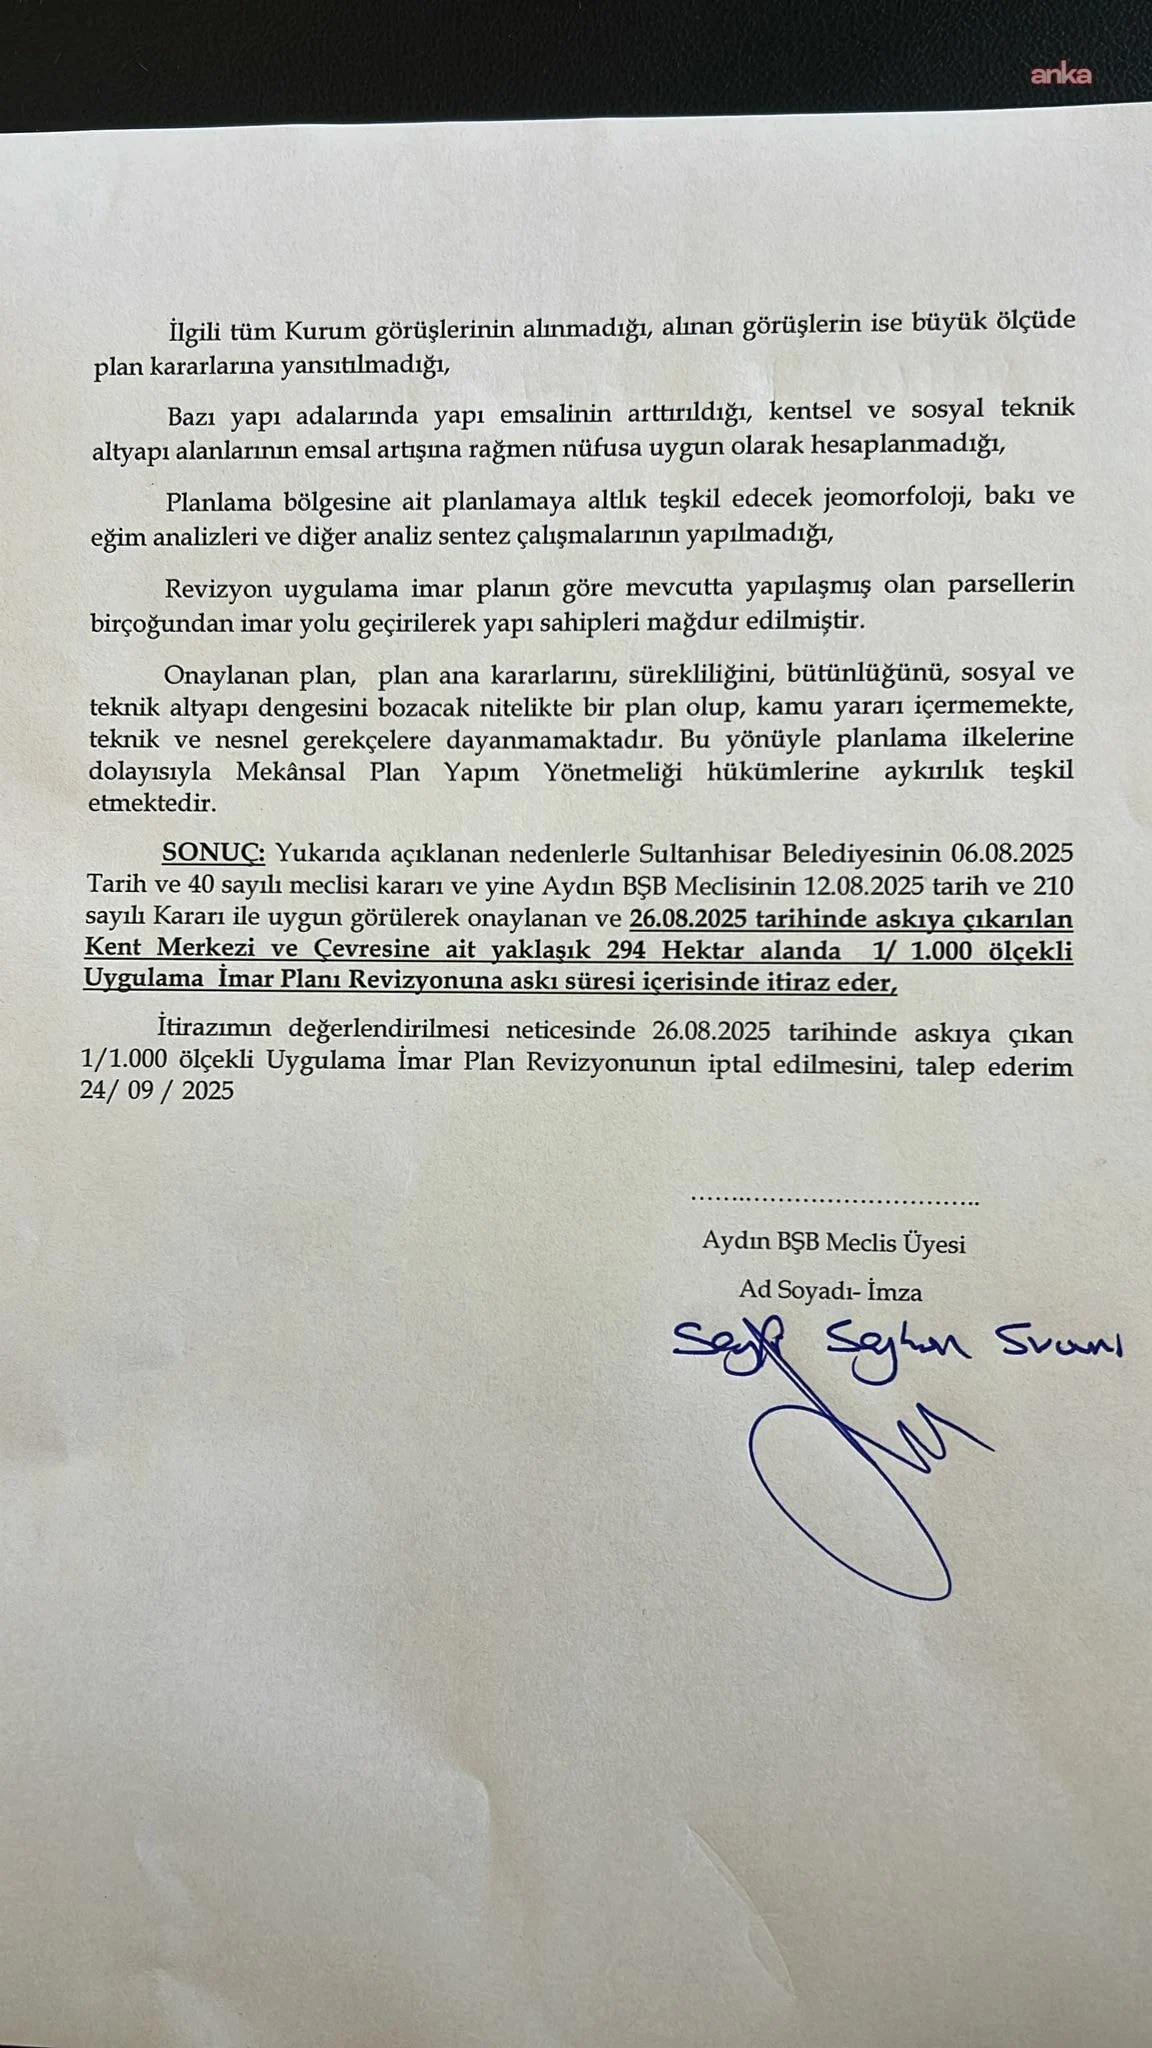 anka
İlgili tüm Kurum görüşlerinin alınmadığı, alınan görüşlerin ise büyük ölçüde
plan kararlarına yansıtılmadığı,
Bazı yapı adalarında yapı emsalinin arttırıldığı, kentsel ve sosyal teknik
altyapı alanlarının emsal artışına rağmen nüfusa uygun olarak hesaplanmadığı,
Planlama bölgesine ait planlamaya altlık teşkil edecek jeomorfoloji, bakı ve
eğim analizleri ve diğer analiz sentez çalışmalarının yapılmadığı,
Revizyon uygulama imar planın göre mevcutta yapılaşmış olan parsellerin
birçoğundan imar yolu geçirilerek yapı sahipleri mağdur edilmiştir.
Onaylanan plan, plan ana kararlarını, sürekliliğini, bütünlüğünü, sosyal ve
teknik altyapı dengesini bozacak nitelikte bir plan olup, kamu yararı içermemekte,
teknik ve nesnel gerekçelere dayanmamaktadır. Bu yönüyle planlama ilkelerine
dolayısıyla Mekânsal Plan Yapım Yönetmeliği hükümlerine aykırılık teşkil
etmektedir.
SONUÇ: Yukarıda açıklanan nedenlerle Sultanhisar Belediyesinin 06.08.2025
Tarih ve 40 sayılı meclisi kararı ve yine Aydın BŞB Meclisinin 12.08.2025 tarih ve 210
sayılı Kararı ile uygun görülerek onaylanan ve 26.08.2025 tarihinde askıya çıkarılan
Kent Merkezi ve Çevresine ait yaklaşık 294 Hektar alanda 1/ 1.000 ölçekli
Uygulama İmar Planı Revizyonuna askı süresi içerisinde itiraz eder,
İtirazımın değerlendirilmesi neticesinde 26.08.2025 tarihinde askıya çıkan
1/1.000 ölçekli Uygulama İmar Plan Revizyonunun iptal edilmesini, talep ederim
24/ 09 / 2025
......................................
Aydın BŞB Meclis Üyesi
Ad Soyadı- İmza
Seyhan